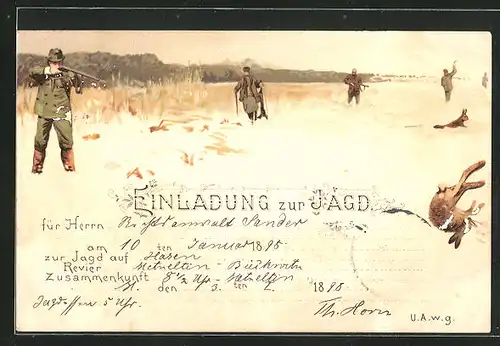 EINLADUNG zur JAGD.
für Herrn Rechtsanwalt Sander
am 10 ten Januar 1895
zur Jagd auf Hasen
Revier
Zusammenkunft 8½ Uhr
den 3. ten 1. 1895
Jagdessen 5 Uhr.
Th. Horn
U.A.w.g.